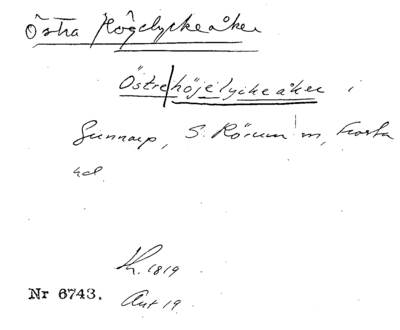 Östra Högelyckeåker
Östre|höjelyckeåker i
Gunnarp, S. Rörum m, Frosta
hd
Kh. 1819
Akt 19.
Nr 6743.